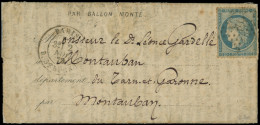 PAR BALLON MONTÉ
Monsieur le Dr Léonce Garrelle
Montauban
département du Tarn et Garonne
par Montauban